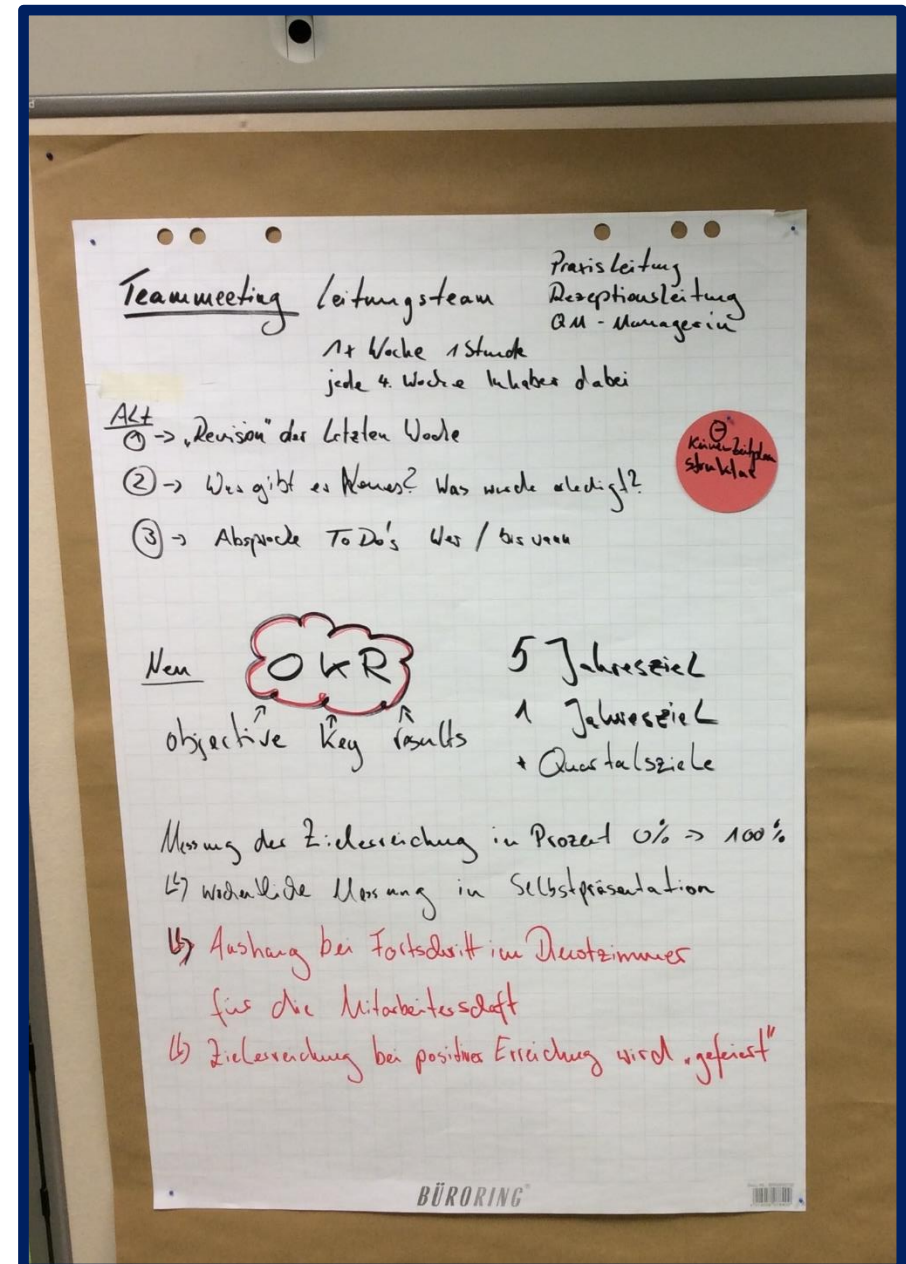 Teammeeting Leitungsteam
Praxisleitung
Rezeptionsleitung
QM-Managerin
1x Woche 1 Stunde
jede 4. Woche Inhaber dabei
Alt
① -> „Revision" der letzten Woche
② -> Was gibt es Neues? Was wurde erledigt?
③ -> Absprache To Do's Wer / bis wann
struktur
Neu OKR
objective Key results
5 Jahresziel
1 Jahresziel
* Quartalsziele
Messung der Zielerreichung in Prozent 0% -> 100%
↳ wöchentliche Messung in Selbstpräsentation
↳ Aushang bei Fortschritt im Dienstzimmer
für die Mitarbeiterschaft
↳ Zielerreichung bei positiver Erreichung wird „gefeiert"
BÜRORING